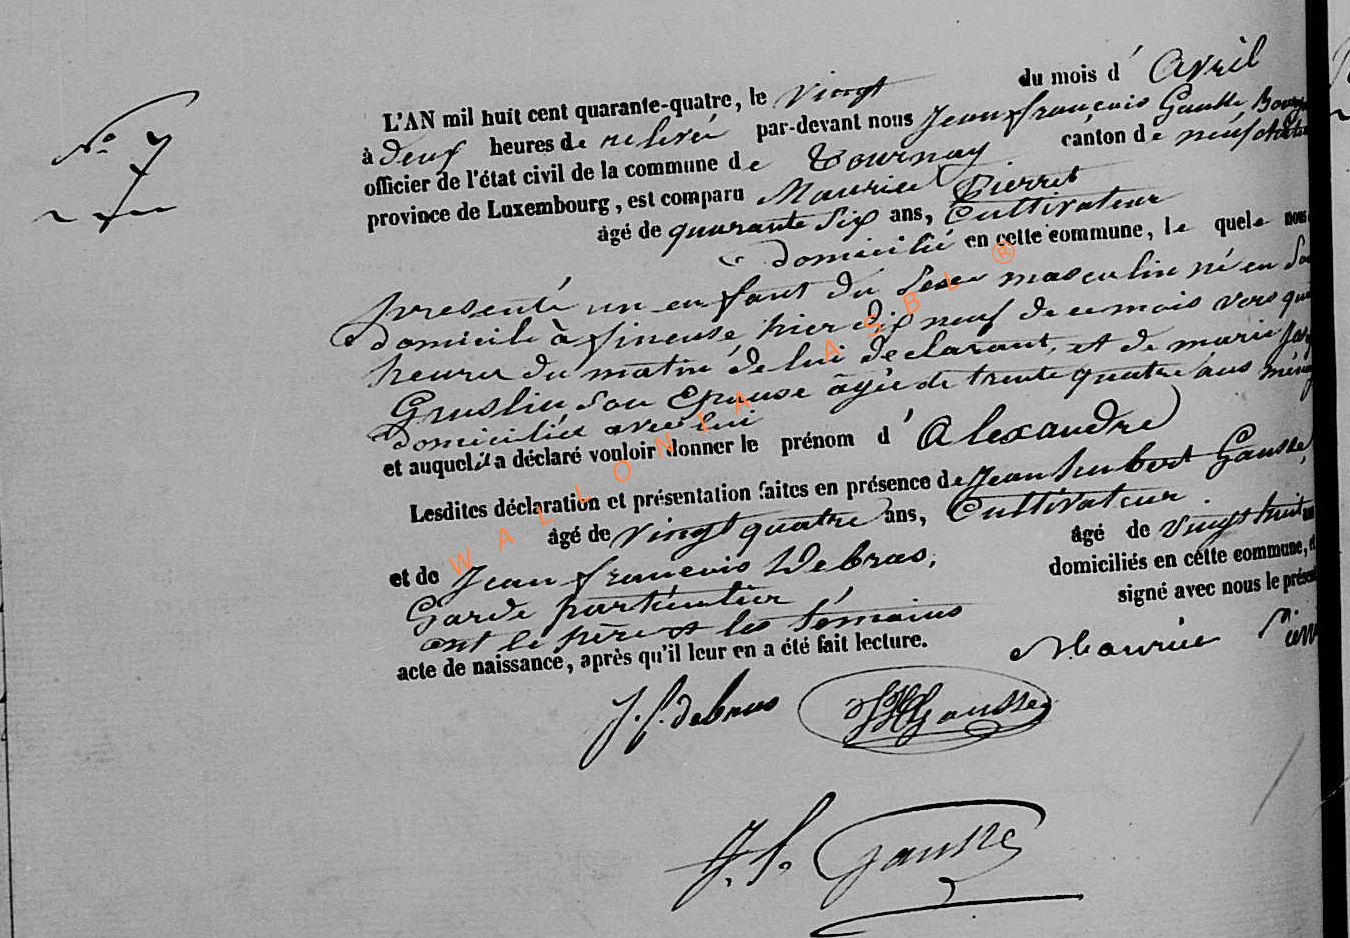 N° 7
L'AN mil huit cent quarante-quatre, le vingt du mois d' Avril
à deux heures de relevée par-devant nous Jean françois Gausse
officier de l'état civil de la commune de Tournay canton de neufchâte
province de Luxembourg, est comparu Maurice Pierret
âgé de quarante Six ans, Cultivateur
domicilié en cette commune, le quel e nous
presenté un enfant du Sexe masculin né en Son
domicile à fineuse hier dix neuf de ce mois vers
heures du matin de lui déclarant, et de marie
Gruslin Son Epouse âgée de trente quatre ans
domiciliée avec lui
et auquel il a déclaré vouloir donner le prénom d' Alexandre
Lesdites déclaration et présentation faites en présence de Jean hubert Gausse,
âgé de vingt quatre ans, Cultivateur.
et de Jean françois Debras, âgé de vingt huit
Garde particulier domiciliés en cette commune,
ont le père et les témoins signé avec nous le présent
acte de naissance, après qu'il leur en a été fait lecture.
Maurice
J. f. debras
JHGausse
J. f. Gausse
WALLONIA ASBL ®